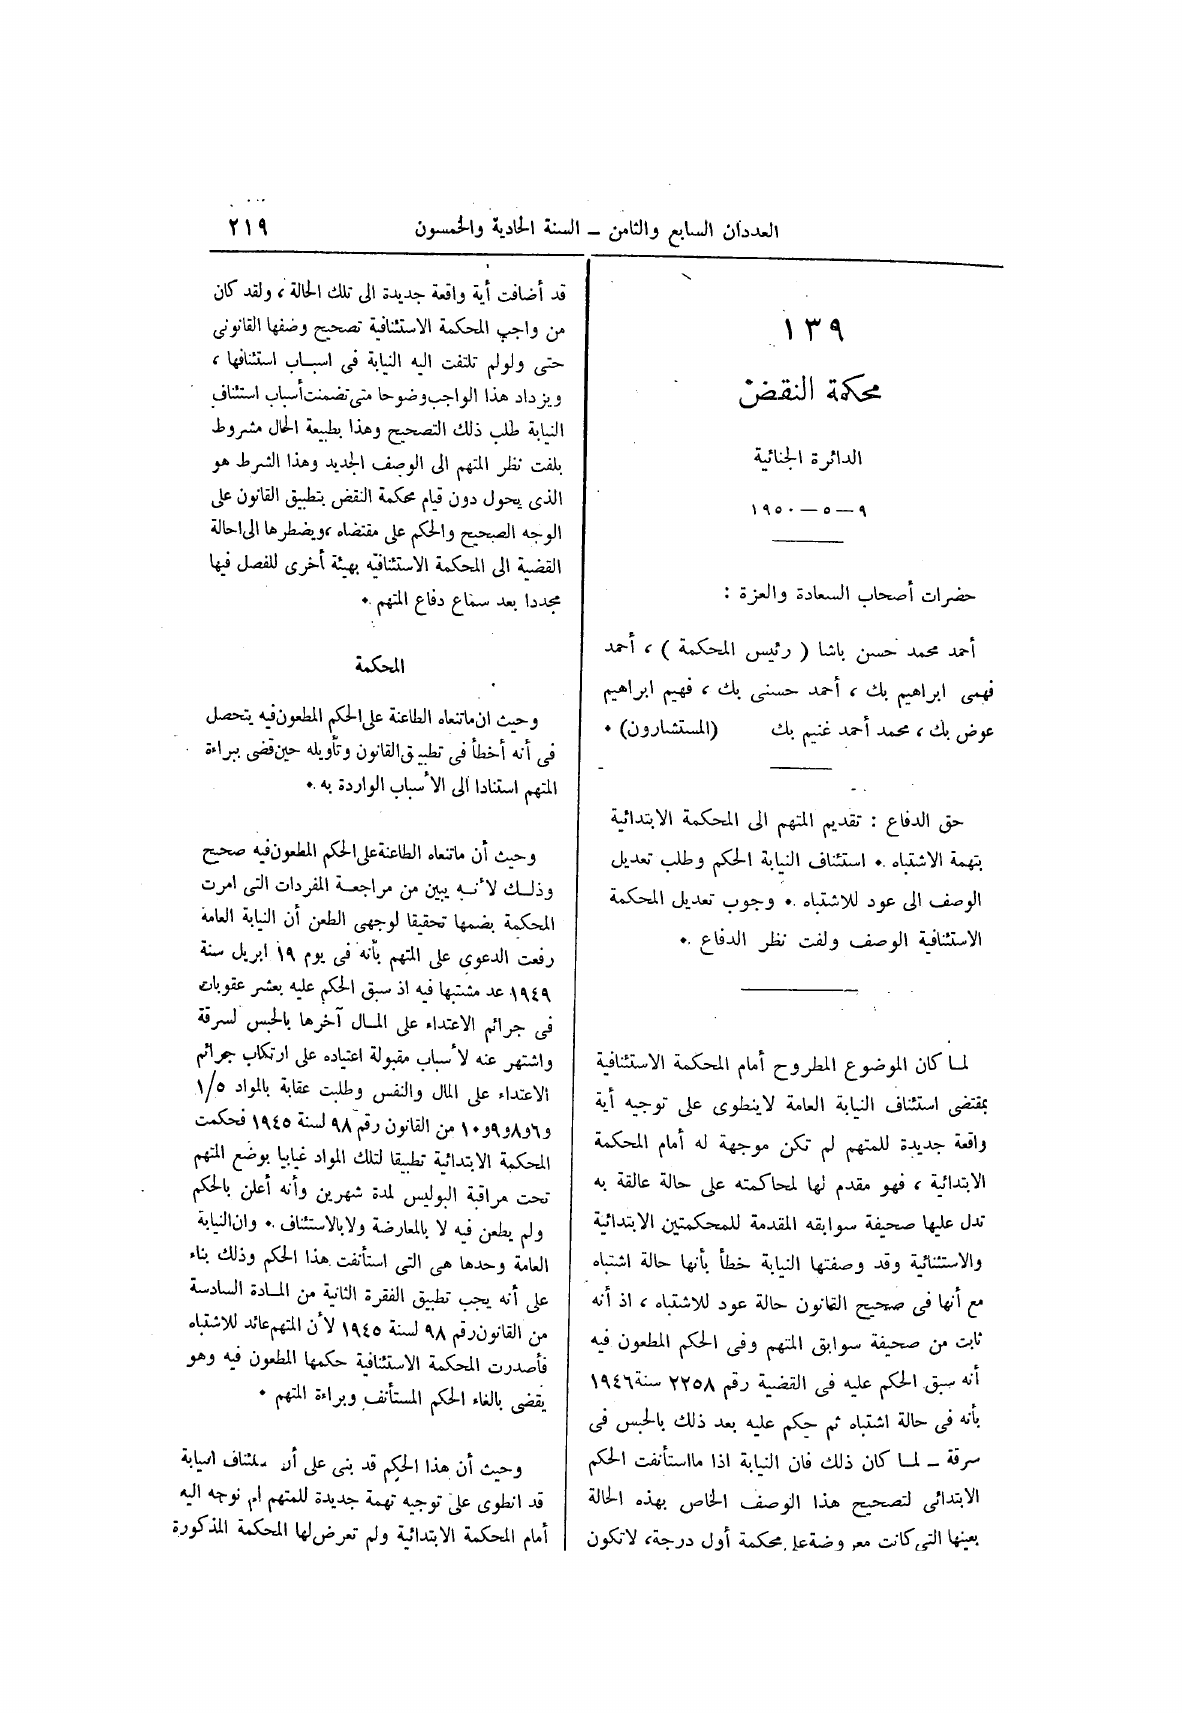 العددان السابع والثامن ــ السنة الحادية والخمسون
٢١٩
١٣٩
محكمة النقض
الدائرة الجنائية
٩ – ٥ – ١٩٥٠
حضرات أصحاب السعادة والعزة :
أحمد محمد حسن باشا ( رئيس المحكمة ) ، أحمد
فهمى ابراهيم بك ، أحمد حسنى بك ، فهيم ابراهيم
عوض بك ، محمد أحمد غنيم بك (المستشارون) .
حق الدفاع : تقديم المتهم الى المحكمة الابتدائية
بتهمة الاشتباه . استئناف النيابة الحكم وطلب تعديل
الوصف الى عود للاشتباه . وجوب تعديل المحكمة
الاستئنافية الوصف ولفت نظر الدفاع .
لما كان الموضوع المطروح أمام المحكمة الاستئنافية
بمقتضى استئناف النيابة العامة لاينطوى على توجيه أية
واقعة جديدة للمتهم لم تكن موجهة له أمام المحكمة
الابتدائية ، فهو مقدم لها لمحاكمته على حالة عالقة به
تدل عليها صحيفة سوابقه المقدمة للمحكمتين الابتدائية
والاستئنائية وقد وصفتها النيابة خطأ بأنها حالة اشتباه
مع أنها فى صحيح القانون حالة عود للاشتباه ، اذ أنه
ثابت من صحيفة سوابق المتهم وفى الحكم المطعون فيه
أنه سبق الحكم عليه فى القضية رقم ٢٢٥٨ سنة ١٩٤٦
بأنه فى حالة اشتباه ثم حكم عليه بعد ذلك بالحبس فى
سرقة ــ لما كان ذلك فان النيابة اذا مااستأنفت الحكم
الابتدائى لتصحيح هذا الوصف الخاص بهذه الحالة
بعينها التى كانت معروضة على محكمة أول درجة، لاتكون
قد أضافت أية واقعة جديدة الى تلك الحالة ، ولقد كان
من واجب المحكمة الاستئنافية تصحيح وضفها القانونى
حتى ولولم تلتفت اليه النيابة فى اسباب استئنافها ،
ويزداد هذا الواجب وضوحا متى تضمنت أسباب استئناف
النيابة طلب ذلك التصحيح وهذا بطبيعة الحال مشروط
بلفت نظر المتهم الى الوصف الجديد وهذا الشرط هو
الذى يحول دون قيام محكمة النقض بتطبيق القانون على
الوجه الصحيح والحكم على مقتضاه ، ويضطرها الى احالة
القضية الى المحكمة الاستئنافيه بهيئة أخرى للفصل فيها
مجددا بعد سماع دفاع المتهم .
المحكمة
وحيث ان ماتنعاه الطاعنة على الحكم المطعون فيه يتحصل
فى أنه أخطأ فى تطبيق القانون وتأويله حين قضى ببراءة
المتهم استنادا الى الأسباب الواردة به .
وحيث أن ماتنعاه الطاعنة على الحكم المطعون فيه صحيح
وذلك لأنه يبين من مراجعة المفردات التى امرت
المحكمة بضمها تحقيقا لوجهى الطعن أن النيابة العامة
رفعت الدعوى على المتهم بأنه فى يوم ١٩ ابريل سنة
١٩٤٩ عد مشتبها فيه اذ سبق الحكم عليه بعشر عقوبات
فى جرائم الاعتداء على المال آخرها بالحبس لسرقة
واشتهر عنه لأسباب مقبولة اعتياده على ارتكاب جرائم
الاعتداء على المال والنفس وطلبت عقابة بالمواد ١/٥
و٦و٨و٩و١٠ من القانون رقم ٩٨ لسنة ١٩٤٥ فحكمت
المحكمة الابتدائية تطبيقا لتلك المواد غيابيا بوضع المتهم
تحت مراقبة البوليس لمدة شهرين وأنه أعلن بالحكم
ولم يطعن فيه لا بالمعارضة ولا بالاستئناف . وان النيابة
العامة وحدها هى التى استأنفت هذا الحكم وذلك بناء
على أنه يجب تطبيق الفقرة الثانية من المادة السادسة
من القانون رقم ٩٨ لسنة ١٩٤٥ لأن المتهم عائد للاشتباه
فأصدرت المحكمة الاستئنافية حكمها المطعون فيه وهو
يقضى بالغاء الحكم المستأنف وبراءة المتهم .
وحيث أن هذا الحكم قد بنى على أن استئناف النيابة
قد انطوى على توجيه تهمة جديدة للمتهم لم توجه اليه
أمام المحكمة الابتدائية ولم تعرض لها المحكمة المذكورة